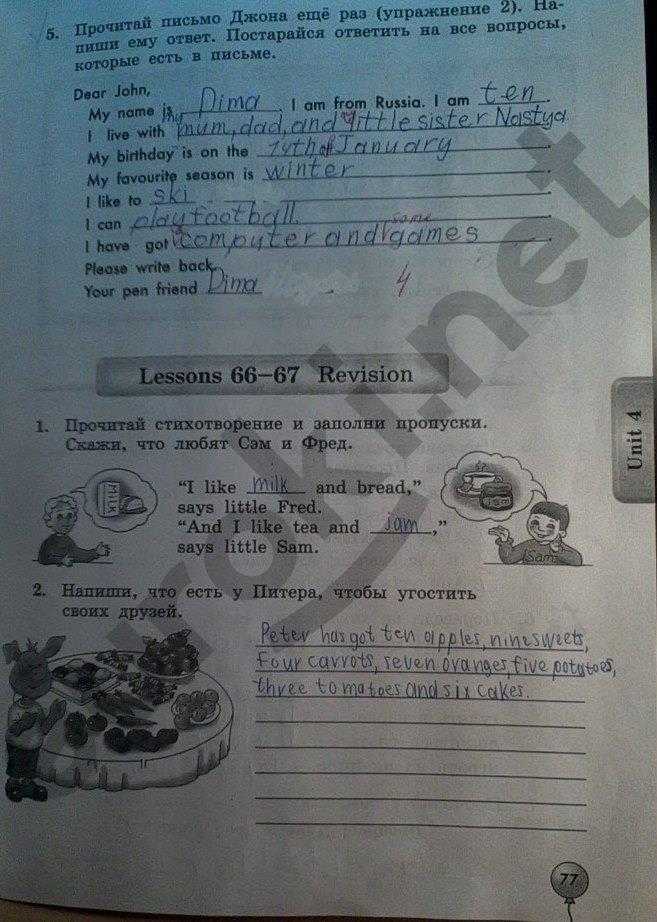 5. Прочитай письмо Джона ещё раз (упражнение 2). На-
пиши ему ответ. Постарайся ответить на все вопросы,
которые есть в письме.
Dear John,
My name is Dima. I am from Russia. I am ten.
I live with my mum, dad, and little sister Nastya
My birthday is on the 14th of January.
My favourite season is winter.
I like to ski.
I can play football.
I have got computer and some games.
Please write back.
Your pen friend Dima
4
Lessons 66–67 Revision
1. Прочитай стихотворение и заполни пропуски.
Скажи, что любят Сэм и Фред.
MILK
"I like milk and bread,"
says little Fred.
"And I like tea and jam,"
says little Sam.
Jam
Sam
2. Напиши, что есть у Питера, чтобы угостить
своих друзей.
Peter has got ten apples, nine sweets,
four carrots, seven oranges, five potatoes,
three tomatoes and six cakes.
Unit 4
77
uroki.net